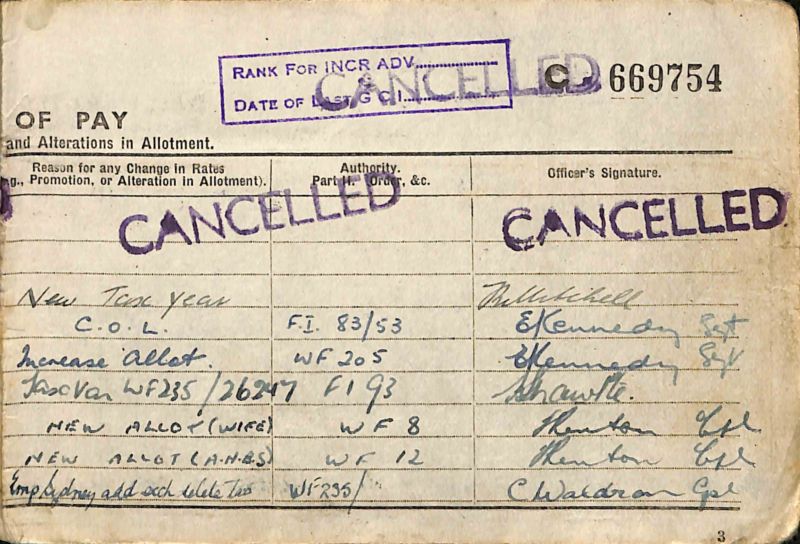 RANK FOR INCR ADV
&
DATE OF LAST G C I
CANCELLED
C. 669754
OF PAY
and Alterations in Allotment.
Reason for any Change in Rates
g., Promotion, or Alteration in Allotment).
Authority.
Part II. Order, &c.
Officer's Signature.
CANCELLED
CANCELLED
New Tax Year
C.O.L. F.I. 83/53 E Kennedy Sgt
Increase allot. WF 205 E Kennedy Sgt
Tax Var WF235/26247 F I 93
NEW ALLOT (WIFE) WF 8 Cpl
NEW ALLOT (A.N.B.S) WF 12 Cpl
Emp Sydney add delete Tax WF 235/ C Waldron Cpl
3